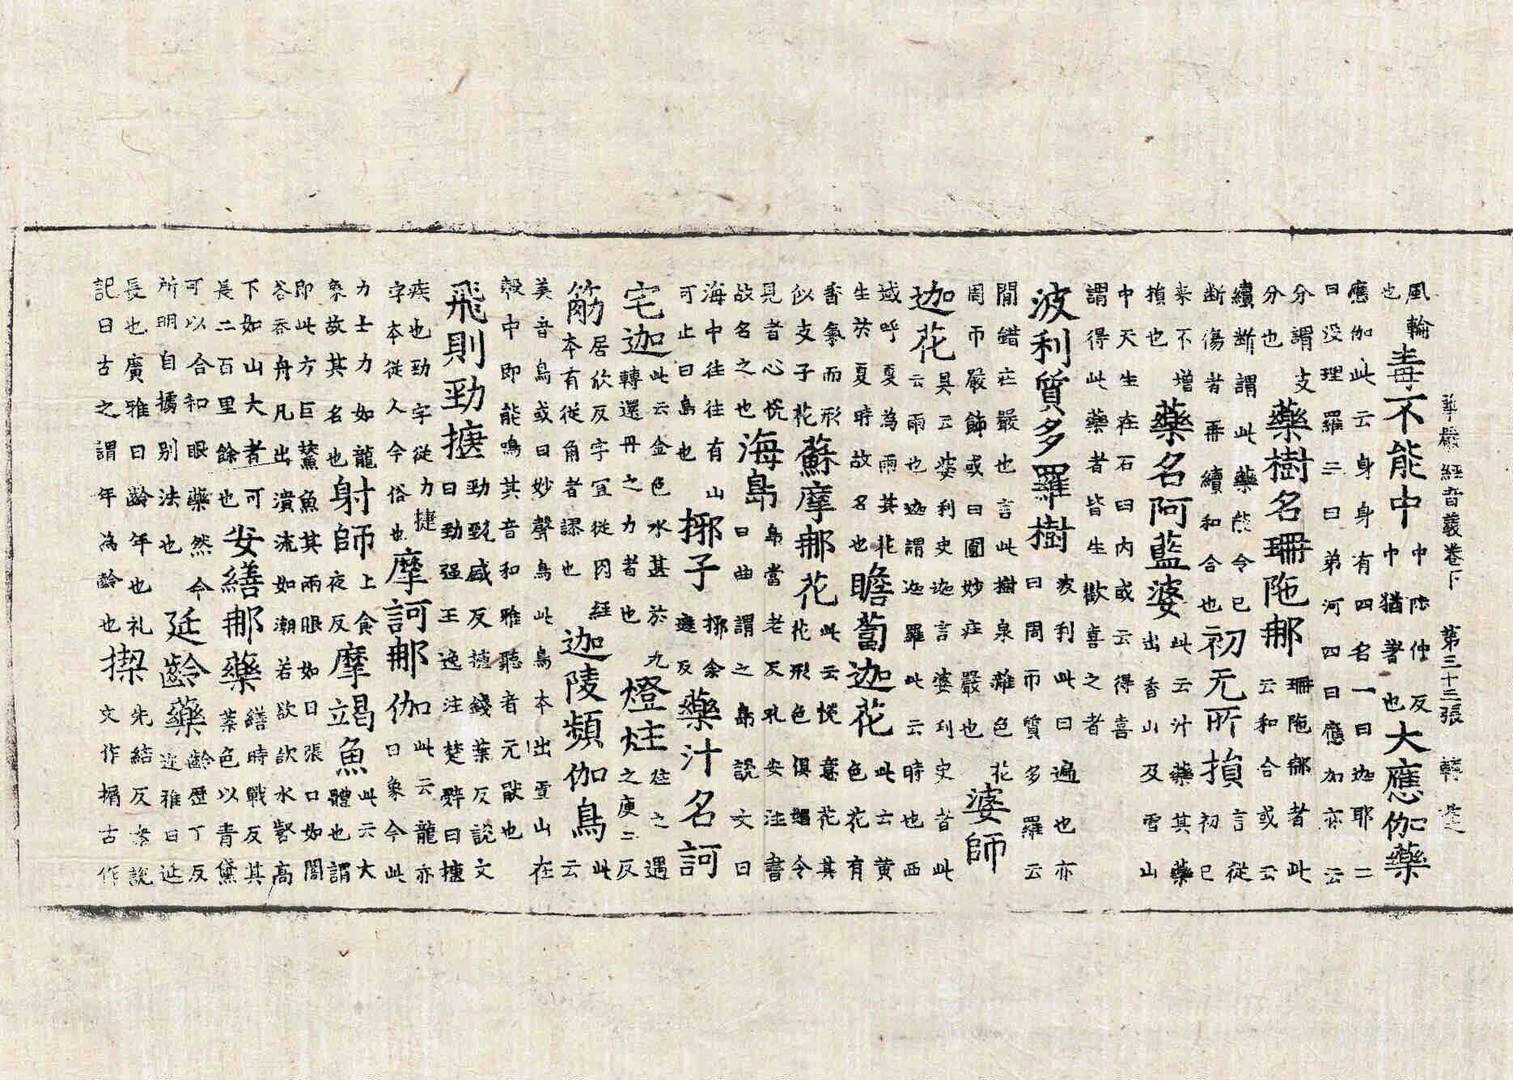 華嚴經音義卷下 第三十三張 轉
風輪也毒不能中中陟仲反中猶著也大應伽藥
應伽此云身身有四名一曰迦耶二
曰設理羅三曰弟河四曰應加亦云
分謂支分也藥樹名珊陁那珊陁那者此云和合或云
續斷謂此藥能令已斷傷者再續和合也初无所損言從初已
來不增損也藥名阿藍婆此云汁藥其藥出香山及雪山
中天生在石臼內或云得喜
謂得此藥者皆生歡喜之者
波利質多羅樹波利此曰遍也亦曰周帀質多羅云
間錯莊嚴也言此樹衆雜色花周帀嚴飾或曰圓妙莊嚴也婆師
迦花具云婆利史迦言婆利史者此云雨也迦謂迦羅此云時也西
域呼夏為雨其花生於夏時故名也瞻蔔迦花此云黃色花有
香氣而形似支子花蘇摩那花此云悅意花其花形色俱媚令
見者心悅故名之也海島島當老反孔安注書曰曲謂之島說文曰
海中往往有山可止曰島也挪子挪余遮反藥汁名訶
宅迦此云金色水甚於九轉還丹之力者也燈炷炷之遇之庾二反
筋居欣反字宜從肉經本有從角者謬也迦陵頻伽鳥此云
美音鳥或曰妙聲鳥此鳥本出雪山在
㲉中即能鳴其音和雅聽者无猒也
飛則勁捷勁盛反捷錢葉反說文曰勁强王逸注楚辭曰捷
疾也勁字從力捷字本從人今俗也摩訶那伽此云龍亦曰象今此
力士力如龍象故其名也射師上食夜反摩竭魚此云大體也謂
即此方巨鰲魚其兩眼如日張口如闇
谷吞舟凡出濆流如潮若欲飲水壑高
下如山大者可長二百里餘也安繕那藥繕時戰反其藥色以青黛
可以合和眼藥然今所明自擄別法也延齡藥齡歷丁反迩雅曰延
長也廣雅曰齡年也礼記曰古之謂年為齡也揳先結反說文作古作